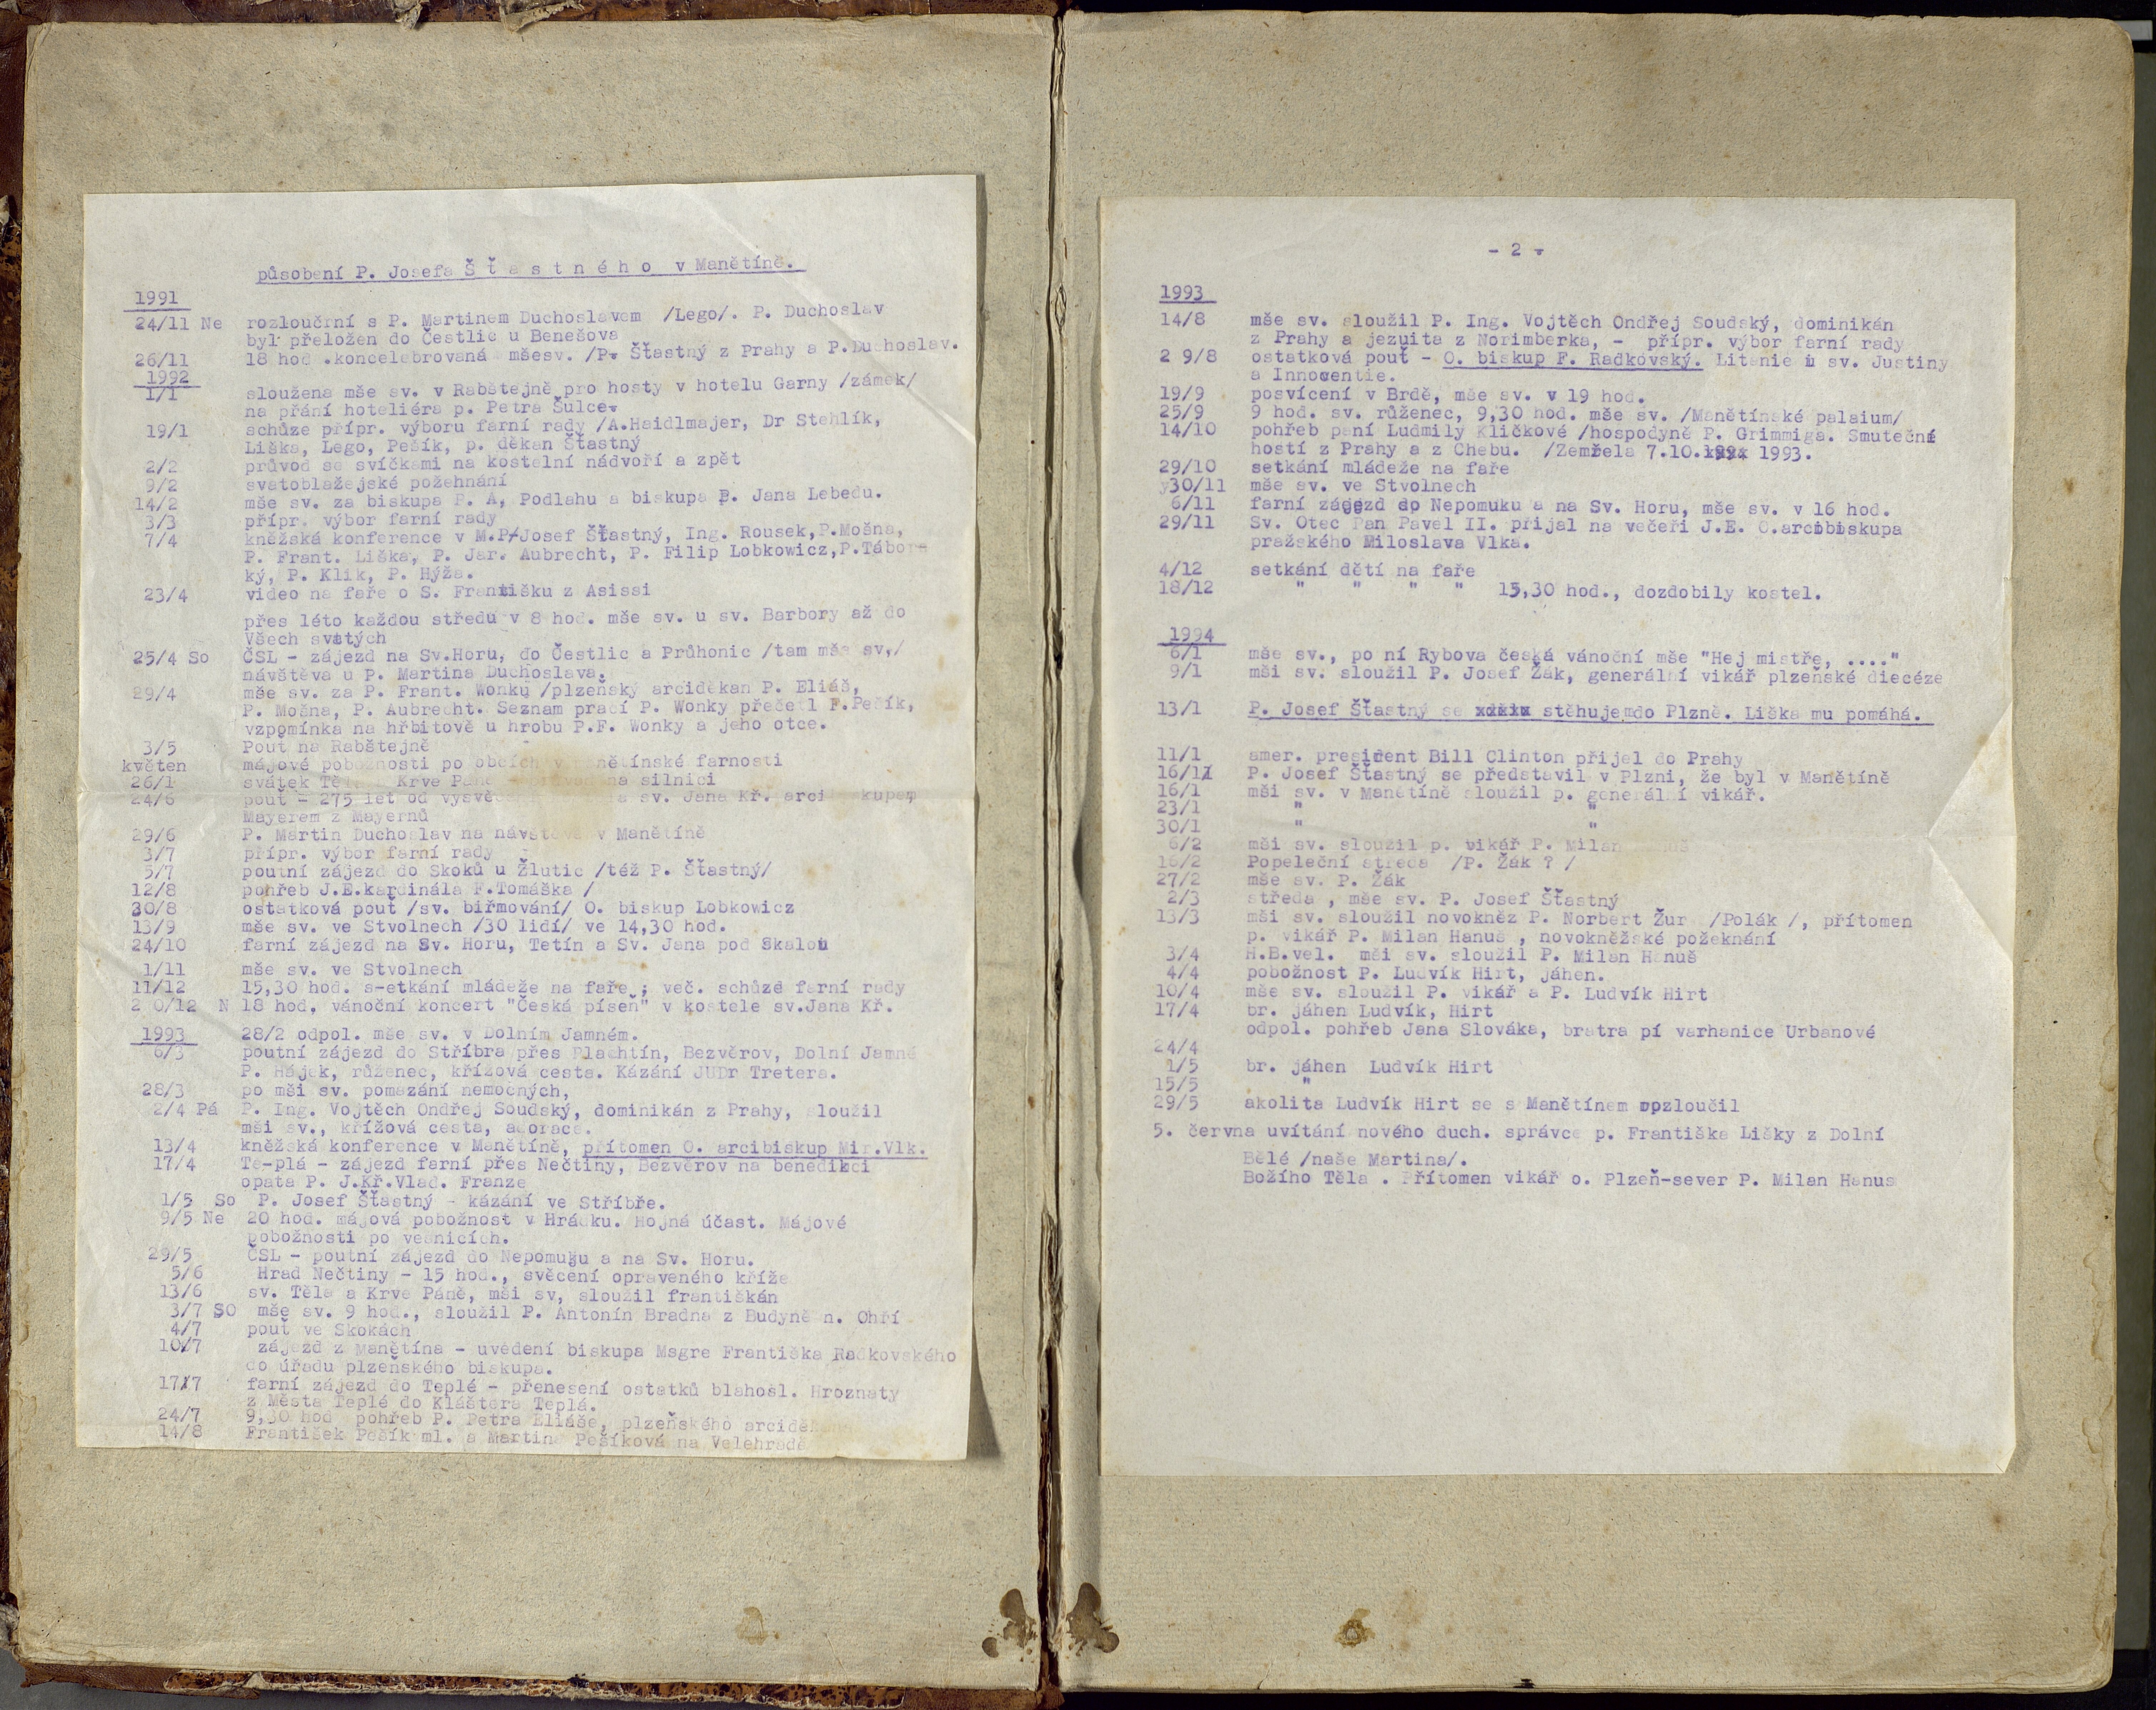 působení P. Josefa Š ť a s t n é h o v Manětíně.
1991
24/11 Ne rozloučrní s P. Martinem Duchoslavem /Lego/. P. Duchoslav
byl přeložen do Čestlic u Benešova
26/11 18 hod .koncelebrovaná mšesv. /P. Šťastný z Prahy a P.Duchoslav.
1992
1/1 sloužena mše sv. v Rabštejně pro hosty v hotelu Garny /zámek/
na přání hoteliéra p. Petra Šulce.
19/1 schůze přípr. výboru farní rady /A.Haidlmajer, Dr Stehlík,
Liška, Lego, Pešík, p. děkan Šťastný
2/2 průvod se svíčkami na kostelní nádvoří a zpět
9/2 svatoblažejské požehnání
14/2 mše sv. za biskupa P. A, Podlahu a biskupa P. Jana Lebedu.
3/3 přípr. výbor farní rady
7/4 kněžská konference v M.P/Josef Šťastný, Ing. Rousek,P.Mošna,
P. Frant. Liška, P. Jar. Aubrecht, P. Filip Lobkowicz,P.Tábor-
ký, P. Klik, P. Hýža.
23/4 video na faře o S. Františku z Asissi
přes léto každou středu v 8 hod. mše sv. u sv. Barbory až do
Všech svatých
25/4 So ČSL - zájezd na Sv.Horu, do Čestlic a Průhonic /tam mše sv,/
návštěva u P. Martina Duchoslava.
29/4 mše sv. za P. Frant. Wonku /plzeňský arciděkan P. Eliáš,
P. Mošna, P. Aubrecht. Seznam prací P. Wonky přečetl F.Pešík,
vzpomínka na hřbitově u hrobu P.F. Wonky a jeho otce.
3/5 Pouť na Rabštejně
květen májové pobožnosti po obcích v nětínské farnosti
26/1 svátek Těl Krve Páně - průvod na silnici
24/6 pouť - 275 let od vysvě sv. Jana Kř. arci kupem
Mayerem z Mayernů
29/6 P. Martin Duchoslav na návštěvě v Manětíně
3/7 přípr. výbor farní rady
5/7 poutní zájezd do Skoků u Žlutic /též P. Šťastný/
12/8 pohřeb J.E.kardinála F.Tomáška /
30/8 ostatková pouť /sv. biřmování/ O. biskup Lobkowicz
13/9 mše sv. ve Stvolnech /30 lidí/ ve 14,30 hod.
24/10 farní zájezd na Sv. Horu, Tetín a Sv. Jana pod Skalou
1/11 mše sv. ve Stvolnech
11/12 15,30 hod. s-etkání mládeže na faře ; več. schůze farní rady
2 0/12 N 18 hod. vánoční koncert "Česká píseň" v kostele sv.Jana Kř.
1993 28/2 odpol. mše sv. v Dolním Jamném.
6/3 poutní zájezd do Stříbra přes Plachtín, Bezvěrov, Dolní Jamné
P. Hájek, růženec, křížová cesta. Kázání JUDr Tretera.
28/3 po mši sv. pomazání nemocných,
2/4 Pá P. Ing. Vojtěch Ondřej Soudský, dominikán z Prahy, sloužil
mši sv., křížová cesta, adorace.
13/4 kněžská konference v Manětíně, přítomen O. arcibiskup Mir.Vlk.
17/4 Te-plá - zájezd farní přes Nečtiny, Bezvěrov na benedikci
opata P. J.Kř.Vlad. Franze
1/5 So P. Josef Šťastný - kázání ve Stříbře.
9/5 Ne 20 hod. májová pobožnost v Hrádku. Hojná účast. Májové
pobožnosti po vesnicích.
29/5 ČSL - poutní zájezd do Nepomuku a na Sv. Horu.
5/6 Hrad Nečtiny - 15 hod., svěcení opraveného kříže
13/6 sv. Těla a Krve Páně, mši sv, sloužil františkán
3/7 SO mše sv. 9 hod., sloužil P. Antonín Bradna z Budyně n. Ohří
4/7 pouť ve Skokách
10/7 zájezd z Manětína - uvedení biskupa Msgre Františka Radkovského
do úřadu plzeňského biskupa.
17/7 farní zájezd do Teplé - přenesení ostatků blahosl. Hroznaty
z Města Teplé do Kláštera Teplá.
24/7 9,30 hod pohřeb P. Petra Eliáše, plzeňského arciděk
14/8 František Pešík ml. a Martina Pešíková na Velehradě
- 2 -
1993
14/8 mše sv. sloužil P. Ing. Vojtěch Ondřej Soudský, dominikán
z Prahy a jezuita z Norimberka, - přípr. výbor farní rady
2 9/8 ostatková pouť - O. biskup F. Radkovský. Litanie u sv. Justiny
a Innocentie.
19/9 posvícení v Brdě, mše sv. v 19 hod.
25/9 9 hod. sv. růženec, 9,30 hod. mše sv. /Manětínské palaium/
14/10 pohřeb paní Ludmily Kličkové /hospodyně P. Grimmiga. Smuteční
hostí z Prahy a z Chebu. /Zemřela 7.10. 1993.
29/10 setkání mládeže na faře
30/11 mše sv. ve Stvolnech
6/11 farní zájezd do Nepomuku a na Sv. Horu, mše sv. v 16 hod.
29/11 Sv. Otec Pan Pavel II. přijal na večeři J.E. O.arcibiskupa
pražského Miloslava Vlka.
4/12 setkání dětí na faře
18/12 " " " " 15,30 hod., dozdobily kostel.
1994
6/1 mše sv., po ní Rybova česká vánoční mše "Hej mistře, ...."
9/1 mši sv. sloužil P. Josef Žák, generální vikář plzeňské diecéze
13/1 P. Josef Šťastný se stěhuje do Plzně. Liška mu pomáhá.
11/1 amer. president Bill Clinton přijel do Prahy
16/1 P. Josef Šťastný se představil v Plzni, že byl v Manětíně
16/1 mši sv. v Manětíně sloužil p. generální vikář.
23/1 " "
30/1 " "
6/2 mši sv. sloužil p. vikář P. Milan
16/2 Popeleční středa /P. Žák ? /
27/2 mše sv. P. Žák
2/3 středa , mše sv. P. Josef Šťastný
13/3 mši sv. sloužil novokněz P. Norbert Žur /Polák /, přítomen
p. vikář P. Milan Hanuš , novokněžské požeknání
3/4 H.B.vel. mši sv. sloužil P. Milan Hanuš
4/4 pobožnost P. Ludvík Hirt, jáhen.
10/4 mše sv. sloužil P. vikář a P. Ludvík Hirt
17/4 br. jáhen Ludvík, Hirt
odpol. pohřeb Jana Slováka, bratra pí varhanice Urbanové
24/4
1/5 br. jáhen Ludvík Hirt
15/5 "
29/5 akolita Ludvík Hirt se s Manětínem rozloučil
5. června uvítání nového duch. správce p. Františka Lišky z Dolní
Bělé /naše Martina/.
Božího Těla . Přítomen vikář o. Plzeň-sever P. Milan Hanus